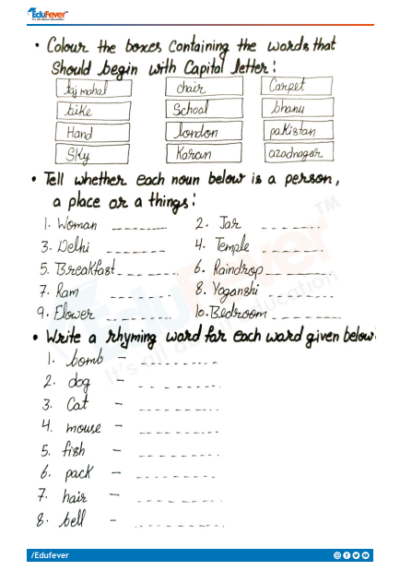 EduFever
• Colour the boxes Containing the words that
Should begin with Capital letter:
taj mahal chair Carpet
bike School bhanu
Hand london pakistan
Sky Karan azadnagar
• Tell whether each noun below is a person,
a place or a things:
1. Woman 2. Jar
3. Delhi 4. Temple
5. Breakfast 6. Raindrop
7. Ram 8. Yoganshi
9. Flower 10. Bedroom
• Write a rhyming word for each word given below.
1. bomb –
2. dog –
3. Cat –
4. mouse –
5. fish –
6. pack –
7. hair –
8. bell –
EduFever
It's all about education
TM
/Edufever